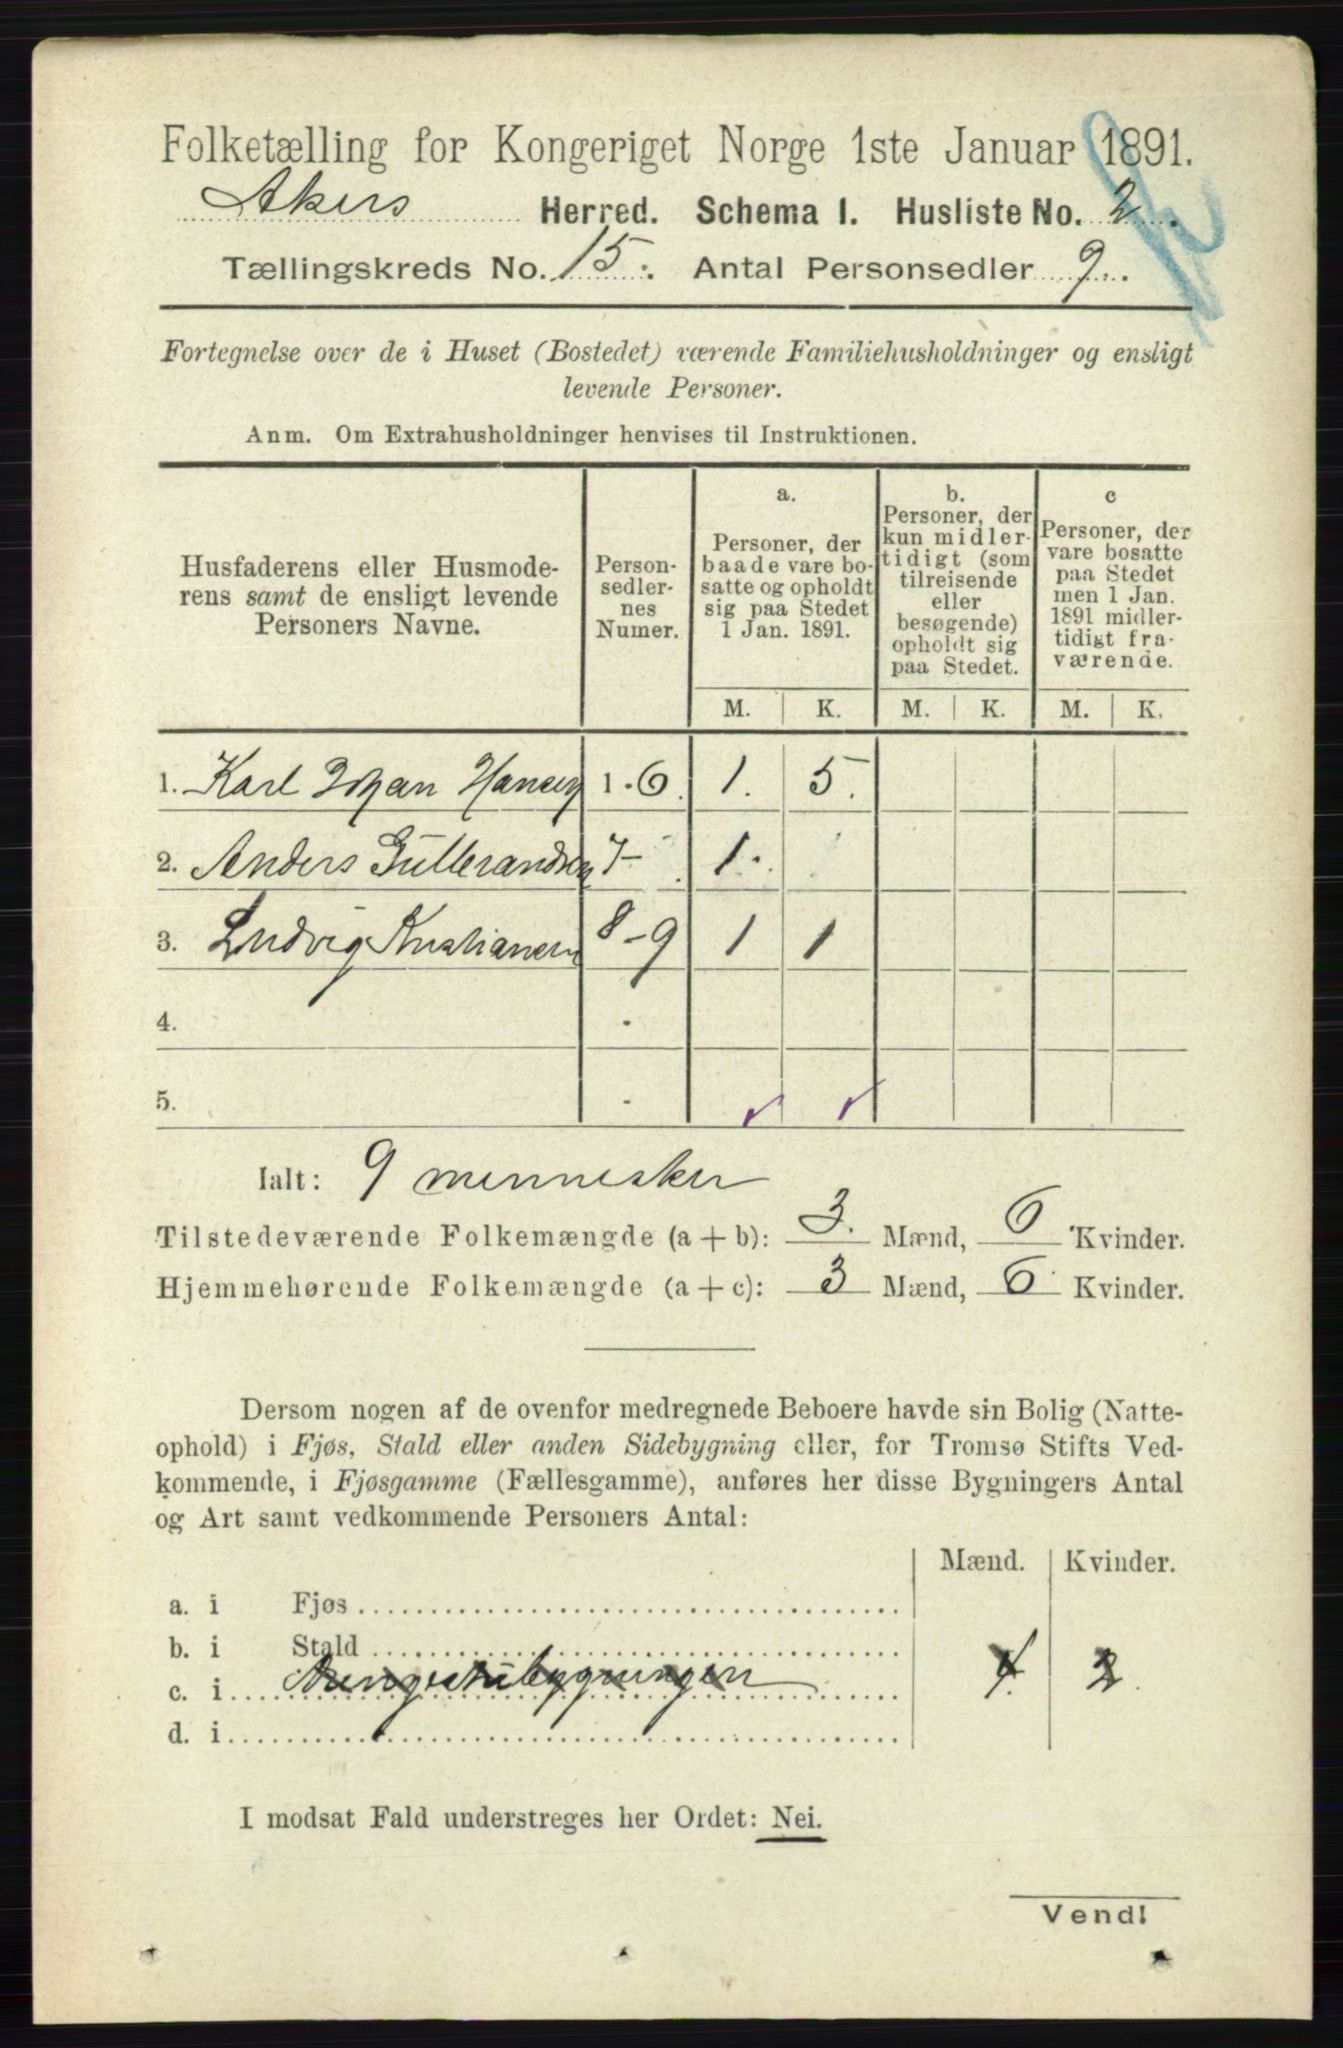 Folketælling for Kongeriget Norge 1ste Januar 1891.
Akers Herred. Schema I. Husliste No. 2.
Tællingskreds No. 15. Antal Personsedler 9.
Fortegnelse over de i Huset (Bostedet) værende Familiehusholdninger og ensligt
levende Personer.
Anm. Om Extrahusholdninger henvises til Instruktionen.
Husfaderens eller Husmode-
rens samt de ensligt levende
Personers Navne.
Person-
sedler-
nes
Numer.
a.
Personer, der
baade vare bo-
satte og opholdt
sig paa Stedet
1 Jan. 1891.
b.
Personer, der
kun midler-
tidigt (som
tilreisende
eller
besøgende)
opholdt sig
paa Stedet.
c
Personer, der
vare bosatte
paa Stedet
men 1 Jan.
1891 midler-
tidigt fra-
værende.
M. K. M. K. M. K.
1. Karl Johan Hansen 1-6. 1. 5.
2. Anders Gullerandsen 7- 1.
3. Ludvig Kristiansen 8-9 1 1
4.
5.
Ialt: 9 mennesker
Tilstedeværende Folkemængde (a + b): 3. Mænd, 6 Kvinder.
Hjemmehørende Folkemængde (a + c): 3 Mænd, 6 Kvinder.
Dersom nogen af de ovenfor medregnede Beboere havde sin Bolig (Natte-
ophold) i Fjøs, Stald eller anden Sidebygning eller, for Tromsø Stifts Ved-
kommende, i Fjøsgamme (Fællesgamme), anføres her disse Bygningers Antal
og Art samt vedkommende Personers Antal:
Mænd. Kvinder.
a. i Fjøs
b. i Stald
c. i 2.
d. i
I modsat Fald understreges her Ordet: Nei.
Vend!